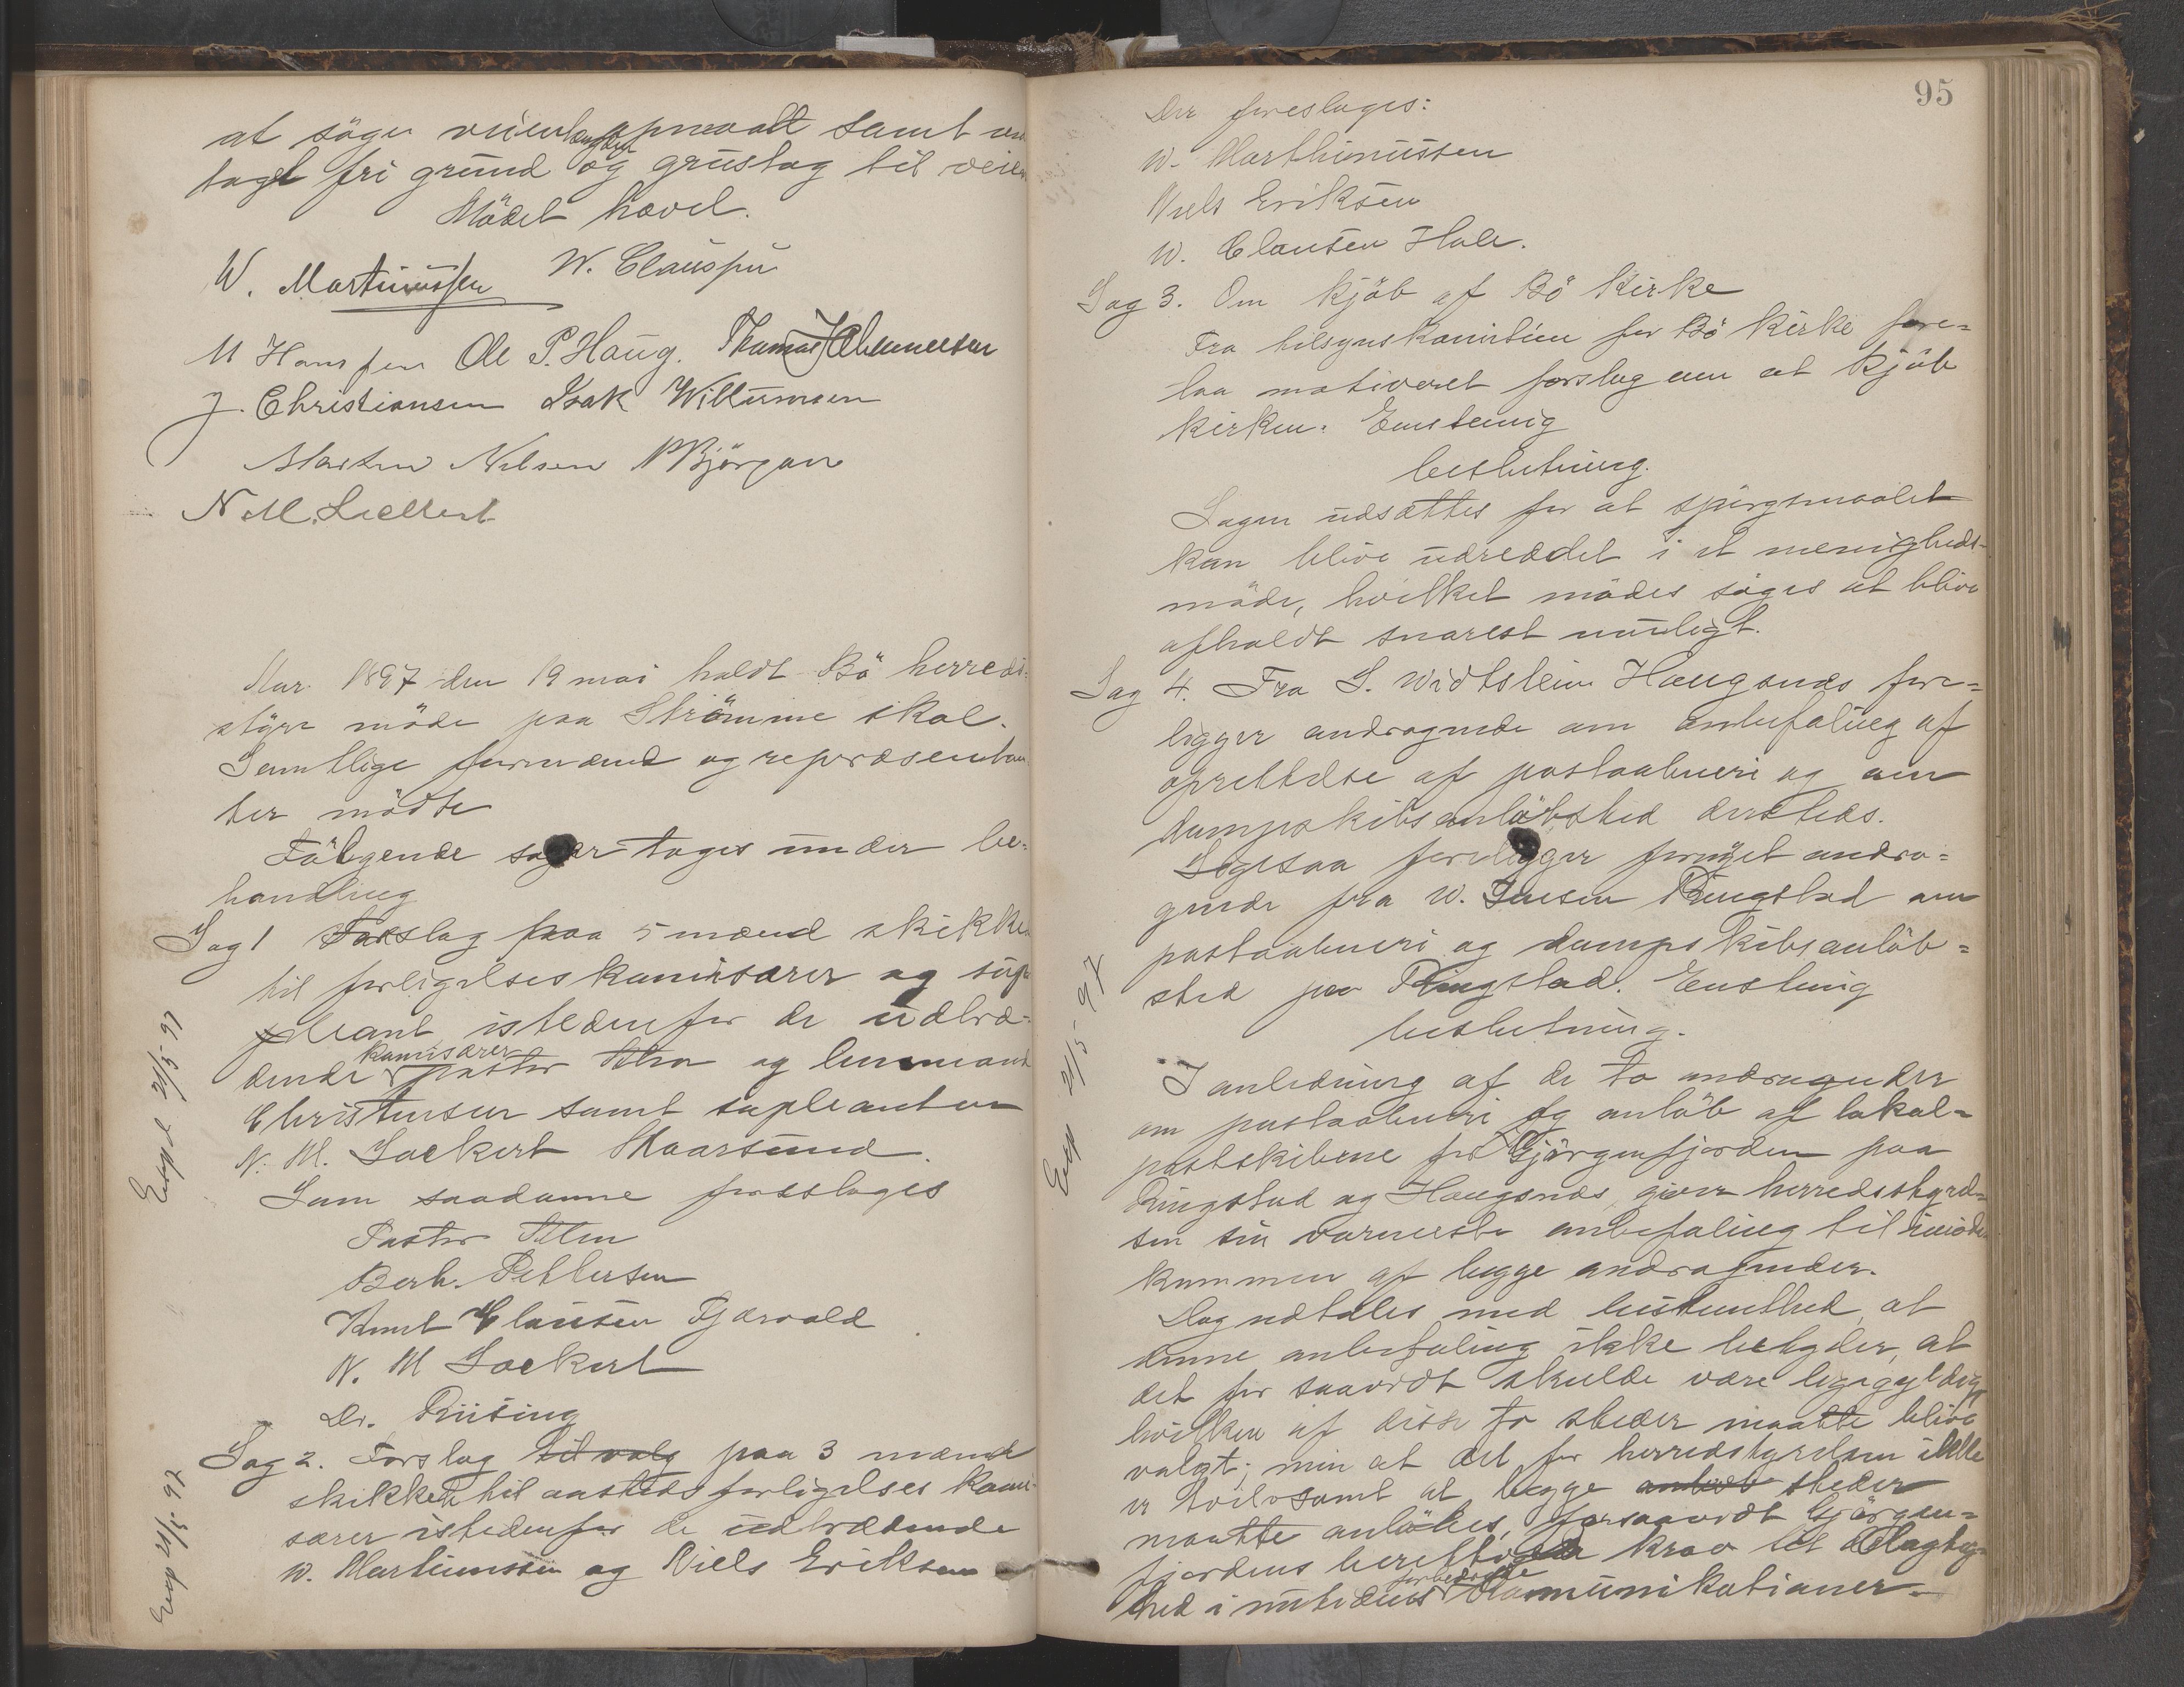 at söge veiens længde opmaalt samt
taget fri grund og grustag til veien
Mödet hævet.
W. Martinussen W. Claussen
M Hansen Ole P. Haug. Thomas Johannesen
J. Christiansen Isak Willumsen
Marten Nilsen P Björgan
N M. Lockert
Aar 1897 den 19 mai holdt Bö herreds-
styre möde paa Strömme skole.
Samtlige formænd og repræsentan
ter mödte
Fölgende sager toges under be-
handling
Sag 1 Forslag paa 5 mænd skikket
til forligelseskomisærer og sup
pleant istedenfor de udtræ-
komisærer
dende pastor Alm og lensmand
Christensen samt supleanten
N. M. Lockert Skaarsund.
Som saadanne foresloges
Pastor Alm
Berh. Pettersen
Knut Clausen Fjærvold
N. M Lockert
Dr. Riising
Sag 2. Forslag til valg paa 3 mænd
skikket til aasteds forligelses komi-
særer istedenfor de udtrædende
W. Martinussen og Niels Eriksen
Exp 21/5-97
Exp 21/5-97
95
Der foresloges:
W. Marthinussen
Niels Eriksen
W. Clausen Hole.
Sag 3. Om kjöb af Bö kirke
Fra tilsynskomiteen for Bö kirke fore-
laa motiveret forslag om at kjöbe
kirken. Enstemig
beslutning.
Sagen udsættes for at spörgsmaalet
kan blive udreddet i et menigheds-
möde, hvilket mödes söges at blive
afholdt snarest muligt.
Sag 4. Fra S. Widtsteen Haugsnæs fore-
ligger andragende om anbefaling af
oprettelse af postaabneri og om
dampskibsanlöbsted dersteds.
Ligesaa foreligger fornyet andra-
gende fra W. Jensen Ringstad om
postaabneri og dampskibsanlöb-
sted paa Ringstad. Enstemig
beslutning.
I anledning af de to andragender
om postaabneri og anlöb af lokal-
postskibene for Gjörgenfjorden paa
Ringstad og Haugsnæs, giver herredsstyrel-
sen sin varmeste anbefaling til imöde-
kommen af begge andragender.
Dog udtales med bestemthed, at
denne anbefaling ikke betyder, at
det for saavidt skulde være ligegyldig
hvilken af disse to steder maatte blive
valgt; men at det for herredstyrelsen ikke
er tvilsomt at begge steder
maatte anlöbes, forsaavidt Görgen-
fjordens berettigede krav til delagtig-
forbedrede
hed i nutidens kommunikationer
Exp 21/5-97